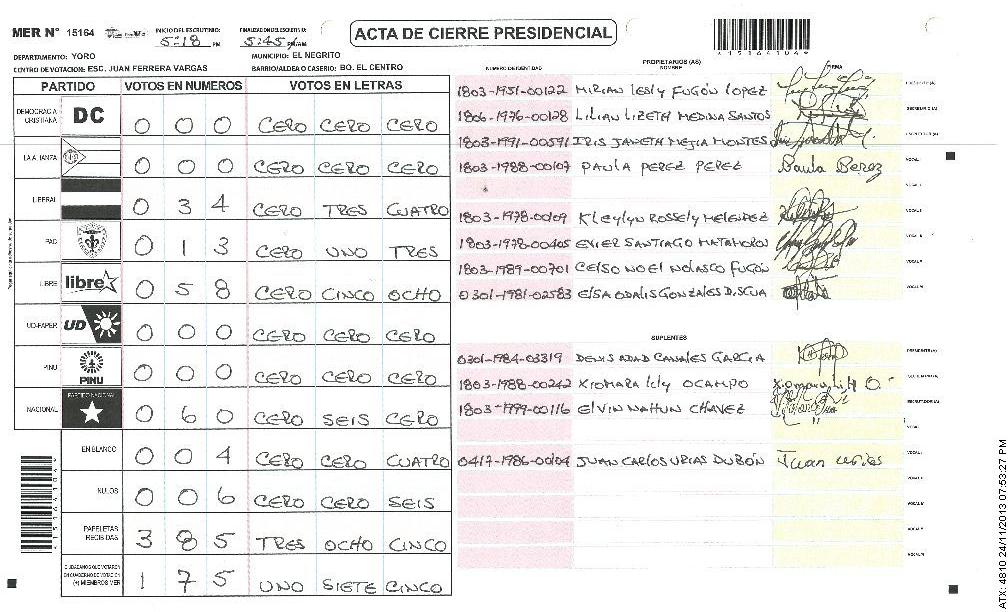 MER Nº 15164
INICIO DEL ESCRUTINIO: 5:18 PM
FINALIZACION DEL ESCRUTINIO: 5:45 PM/AM
ACTA DE CIERRE PRESIDENCIAL
DEPARTAMENTO: YORO
MUNICIPIO: EL NEGRITO
CENTRO DE VOTACION: ESC. JUAN FERRERA VARGAS
BARRIO/ALDEA O CASERIO: BO. EL CENTRO
PARTIDO VOTOS EN NUMEROS VOTOS EN LETRAS
DEMOCRACIA CRISTIANA DC 0 0 0 CERO CERO CERO
LA ALIANZA 0 0 0 CERO CERO CERO
LIBERAL 0 3 4 CERO TRES CUATRO
PAC 0 1 3 CERO UNO TRES
LIBRE libre 0 5 8 CERO CINCO OCHO
UD-FAPER UD 0 0 0 CERO CERO CERO
PINU PINU 0 0 0 CERO CERO CERO
NACIONAL PARTIDO NACIONAL 0 6 0 CERO SEIS CERO
EN BLANCO 0 0 4 CERO CERO CUATRO
NULOS 0 0 6 CERO CERO SEIS
PAPELETAS RECIBIDAS 3 8 5 TRES OCHO CINCO
CIUDADANOS QUE VOTARON EN CUADERNO DE VOTACION (+) MIEMBROS MER 1 7 5 UNO SIETE CINCO
NUMERO DE IDENTIDAD PROPIETARIOS (AS) NOMBRE FIRMA
1803-1951-00122 MIRIAN LESLY FUGÓN LOPEZ
1806-1976-00128 LILIAN LIZETH MEDINA SANTOS SECRETARIO (A)
1803-1991-00591 IRIS JANETH MEJIA MONTES ESCRUTADOR (A)
1803-1988-00107 PAULA PEREZ PEREZ Paula Perez VOCAL I
1803-1978-00109 KLEYLYN ROSSELY MELENDEZ
1803-1978-00405 EXIER SANTIAGO MATAMOROS
1803-1989-00701 CELSO NOEL NOLASCO FUGÓN
0301-1981-02583 ELSA ODALIS GONZALES
SUPLENTES
0301-1984-03319 DENIS ADAD CANALES GARCIA PRESIDENTE (A)
1803-1988-00242 XIOMARA OCAMPO Xiomara O. SECRETARIO (A)
1803-1999-00116 ELVIN NAHUN CHAVEZ ESCRUTADOR (A)
0417-1986-00104 JUAN CARLOS URIAS DUBÓN Juan Urias
ATX: 4810 24/11/2013 07:53:27 PM